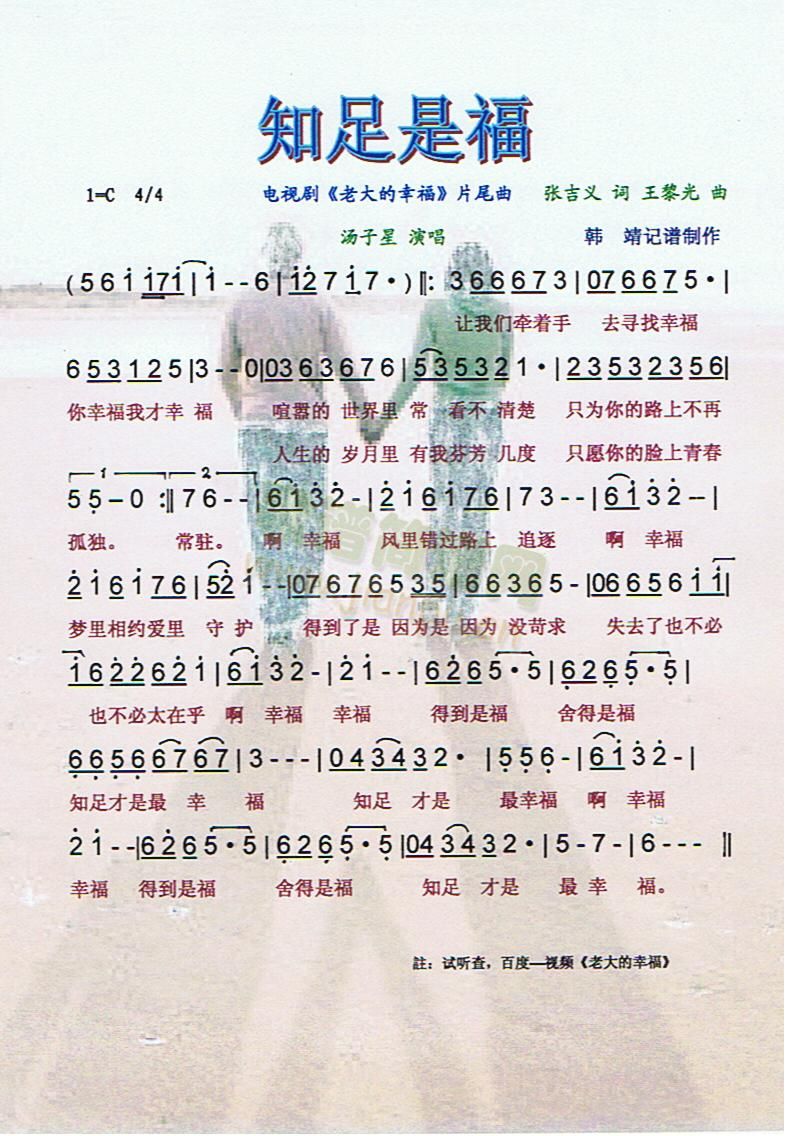 知足是福
1=C 4/4 电视剧《老大的幸福》片尾曲 张吉义 词 王黎光 曲
汤子星 演唱 韩 靖记谱制作
(5 6 1 171 | 1 - - 6 | 12 7 1 7 · ) ‖: 3 6 6 6 6 7 3 | 07 6 6 7 5 · |
让我们牵着手 去寻找幸福
6 5 3 1 2 5 |3 - - 0|03 6 3 6 7 6 | 5 3 5 3 2 1 · | 2 3 5 3 2 3 5 6|
你幸福我才幸 福 喧嚣的 世界里 常 看不 清楚 只为你的路上不再
人生的 岁月里 有我芬芳 几度 只愿你的脸上青春
1 2
5 5 – 0 :‖ 7 6 - - | 6 1 3 2 - | 2 1 6 1 7 6 | 7 3 - - | 6 1 3 2 -- |
孤独。 常驻。 啊 幸福 风里错过路上 追逐 啊 幸福
2 1 6 1 7 6 | 52 1 - -|07 6 7 6 5 3 5 | 6 6 3 6 5 - |0 6 6 5 6 1 1|
梦里相约爱里 守 护 得到了是 因为是 因为 没苛求 失去了也不必
1 6 2 2 6 2 1 | 6 1 3 2 - | 2 1 - - | 6 2 6 5 · 5 | 6 2 6 5 · 5 |
也不必太在乎 啊 幸福 幸福 得到是福 舍得是福
6 6 5 6 6 7 6 7 | 3 - - - | 0 4 3 4 3 2 · | 5 5 6 - | 6 1 3 2 - |
知足才是最 幸 福 知足 才是 最幸福 啊 幸福
2 1 - -|6 2 6 5 · 5 | 6 2 6 5 · 5 |04 3 4 3 2 · | 5 - 7 - | 6 - - - ‖
幸福 得到是福 舍得是福 知足 才是 最 幸 福。
註：试听查，百度—视频《老大的幸福》